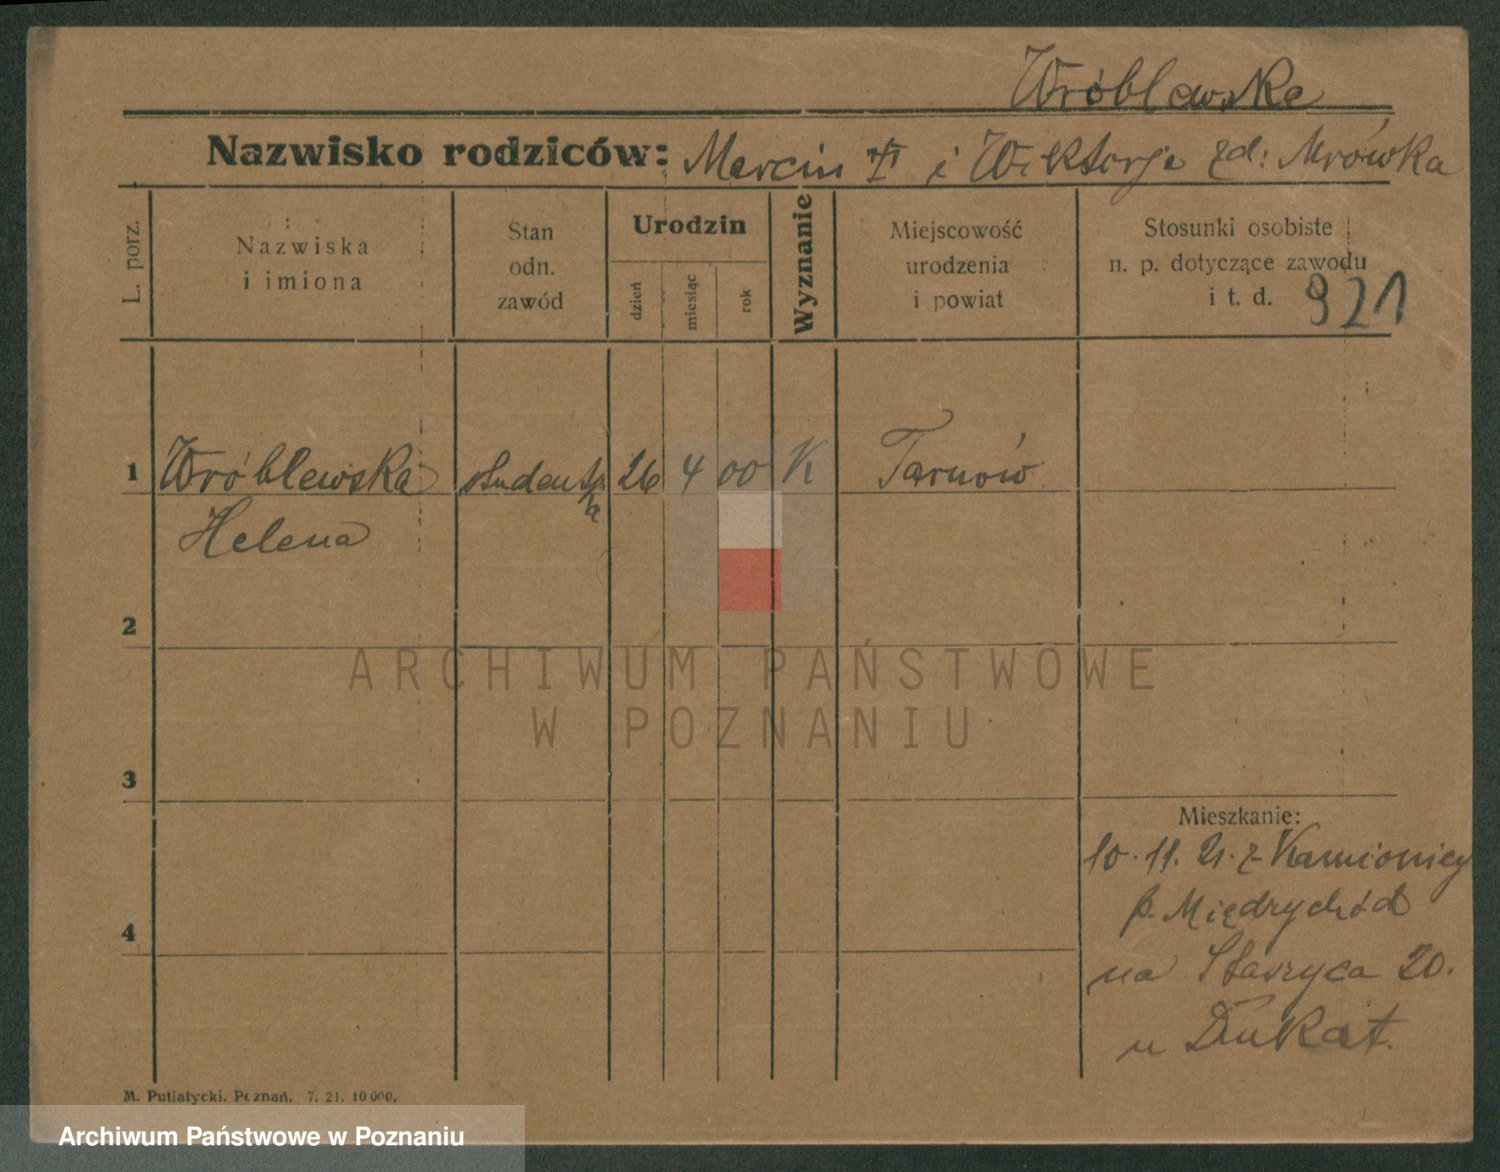 Wróblewska
Nazwisko rodziców: Marcin i Wiktorja zd: Mrówka
L. porz.
Nazwiska
i imiona
Stan
odn.
zawód
Urodzin
dzień
miesiąc
rok
Wyznanie
Miejscowość
urodzenia
i powiat
Stosunki osobiste
n. p. dotyczące zawodu
i t. d. 921
1 Wróblewska studentka 26 4 00 K Tarnów
Helena
2
3
4
Mieszkanie:
10. 11. 21. z Kamionicy
p. Międzychód
na Staszyca 20.
u Dukat.
ARCHIWUM PAŃSTWOWE
W POZNANIU
M. Putiatycki. Poznań. 7. 21. 10000.
Archiwum Państwowe w Poznaniu